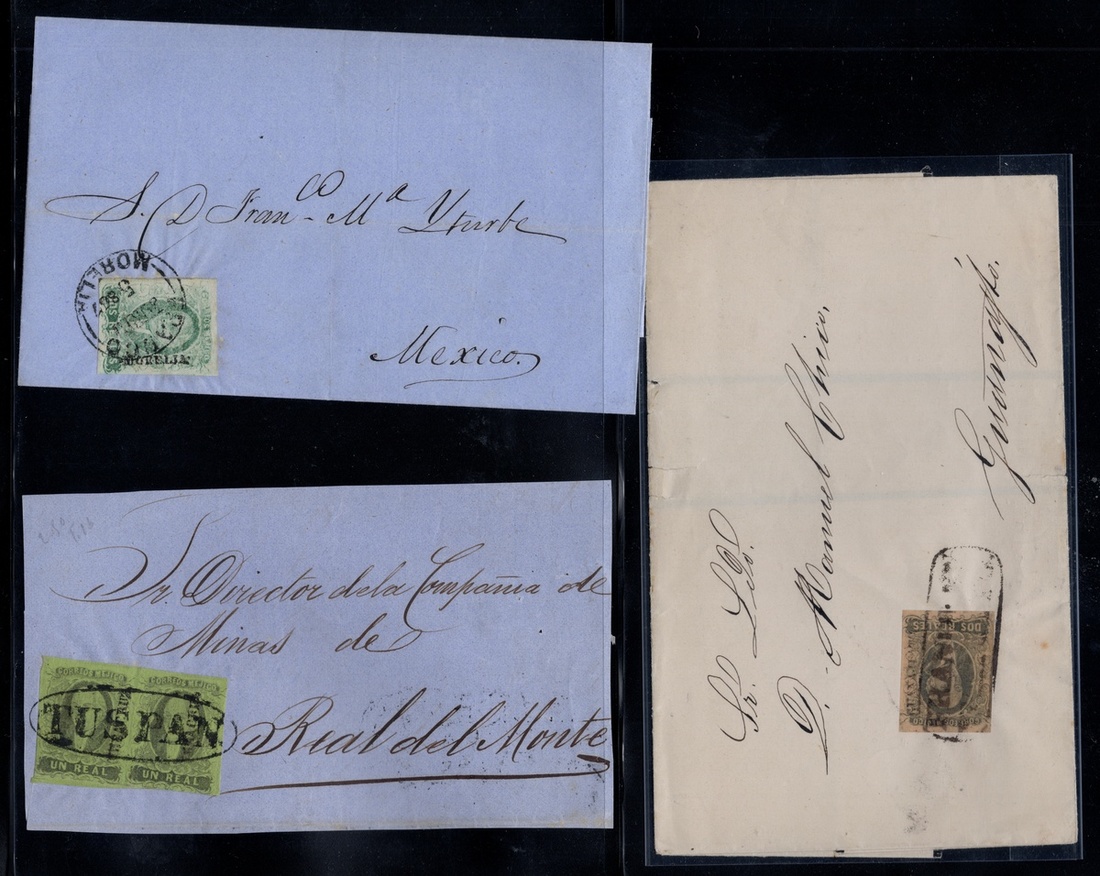 S. D Fran.co Ma Yturbe
Mexico.
MORELIA
MORELIA
Sr. Director de la Compañia de
Minas de
Real del Monte
CORREOS MEJICO
CORREOS MEJICO
TUSPAN
UN REAL
UN REAL
Sr. Lido.
D. Manuel Chico.
Guanajto.
DOS REALES